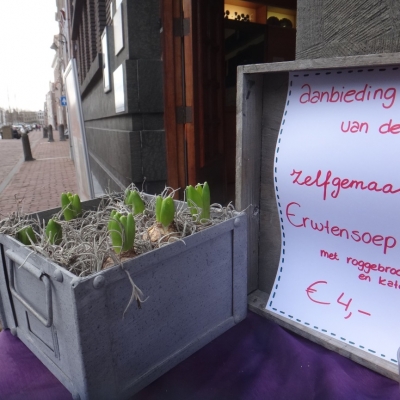 aanbieding
van de
zelfgemaa
Erwtensoep
met roggebro
en kat
€ 4,-